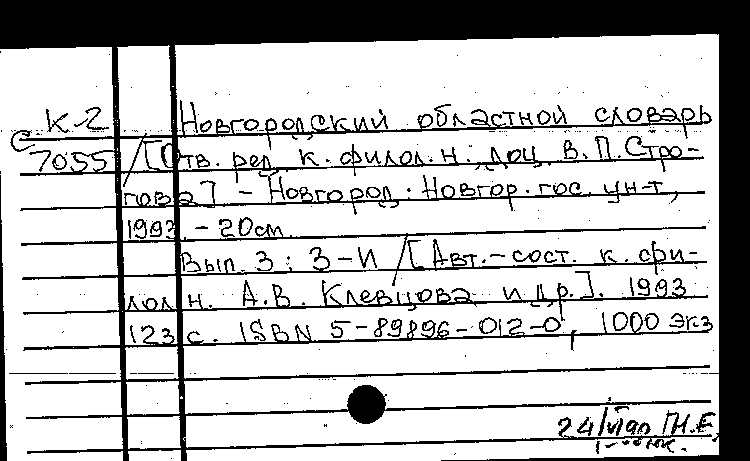 К-2 Новгородский областной словарь
С 7055 / [Отв. ред. к. филол. н., доц. В. П. Стро-
гова] - Новгород: Новгор. гос. ун-т,
1993. - 20 см.
Вып. 3: З-И / [Авт.-сост. к. фи-
лол. н. А.В. Клевцова и др.]. 1993
123 с. ISBN 5-89896-012-0, 1000 экз